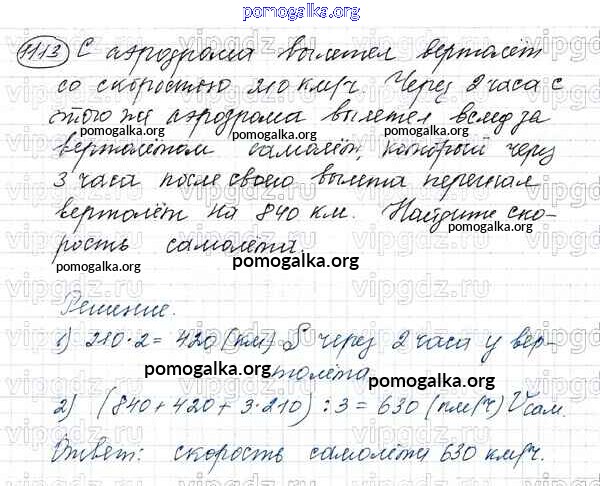 pomogalka.org
1113 С аэродрома вылетел вертолёт
со скоростью 210 км/ч. Через 2 часа с
этого же аэродрома вылетел вслед за
pomogalka.org pomogalka.org
вертолётом самолёт, который через
3 часа после своего вылета перегнал
pomogalka.org pomogalka.org
вертолёт на 840 км. Найдите ско-
рость самолёта.
pomogalka.org pomogalka.org
Решение.
1) 210·2 = 420 (км) S через 2 часа у вер-
толёта
pomogalka.org pomogalka.org
2) (840+420+3·210):3 = 630 (км/ч) Vсам.
Ответ: скорость самолёта 630 км/ч.
pomogalka.org pomogalka.org